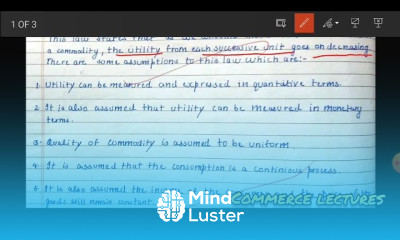 1 OF 3
This law states that as we consume
a commodity, the utility from each successive unit goes on decreasing
There are some assumptions to this law which are:-
1. Utility can be measured and expressed in quantative terms.
2. It is also assumed that utility can be measured in monetary
terms.
3. Quality of commodity is assumed to be uniform
4. It is assumed that the consumption is a continious process.
5. It is also assumed the
goods still remain constant
COMMERCE LECTURES
Mind
Luster